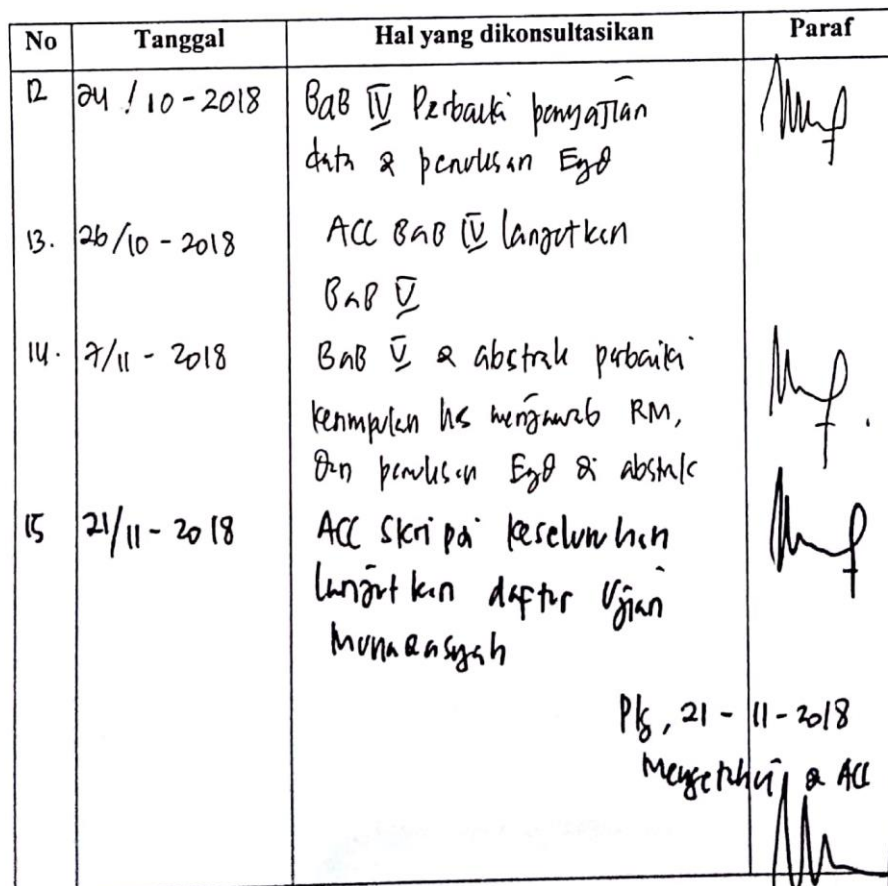 No Tanggal Hal yang dikonsultasikan Paraf
12 24/10-2018 BaB IV Perbaiki penyajian
data & penulisan EyD
13. 26/10-2018 ACC BaB IV lanjutkan
BaB V
14. 7/11-2018 BaB V & abstrak perbaiki
kesimpulan hs menjawab RM,
dan penulisan EyD di abstrak
15 21/11-2018 ACC Skripsi keseluruhan
lanjutkan daftar Ujian
Munaqasyah
Plg, 21-11-2018
Mengetahui & ACC